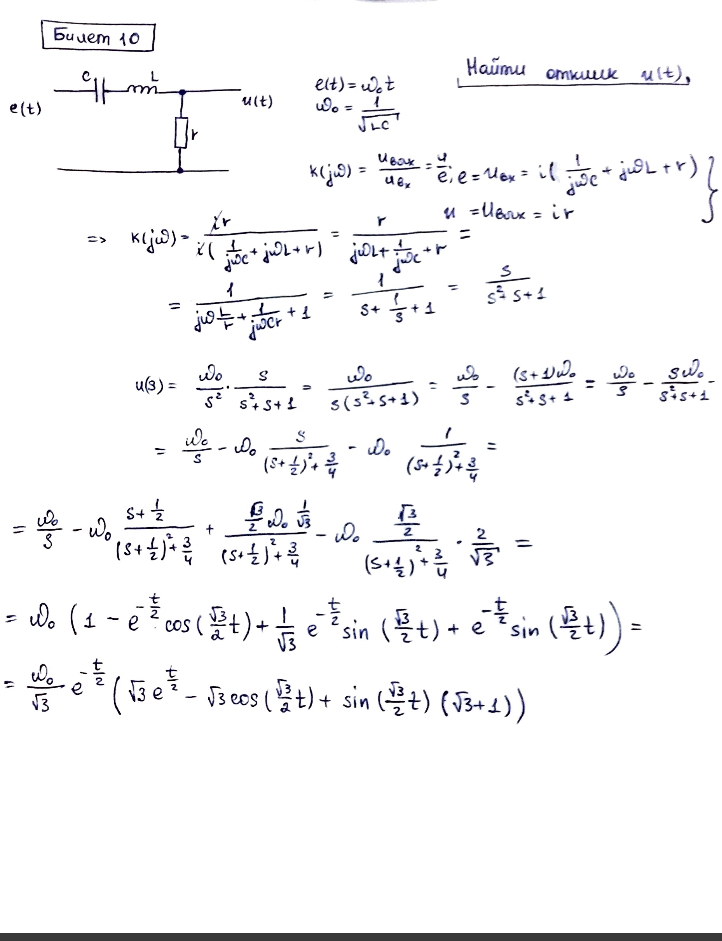 Билет 10
Найти отклик u(t),
C L
e(t) u(t) r
e(t) = ω₀t
ω₀ = 1/√(LC)
K(jω) = uвых/uвх = u/e; e = uвх = i(1/(jωC) + jωL + r)
u = uвых = ir
=> K(jω) = ir/(i(1/(jωC) + jωL + r)) = r/(jωL + 1/(jωC) + r) =
= 1/(jω L/r + 1/(jωCr) + 1) = 1/(s + 1/s + 1) = s/(s² + s + 1)
u(s) = ω₀/s² · s/(s² + s + 1) = ω₀/(s(s² + s + 1)) = ω₀/s - (s+1)ω₀/(s² + s + 1) = ω₀/s - sω₀/(s² + s + 1) -
= ω₀/s - ω₀ s/((s + 1/2)² + 3/4) - ω₀ 1/((s + 1/2)² + 3/4) =
= ω₀/s - ω₀ (s + 1/2)/((s + 1/2)² + 3/4) + (√3/2 ω₀ 1/√3)/((s + 1/2)² + 3/4) - ω₀ (√3/2)/((s + 1/2)² + 3/4) · 2/√3 =
= ω₀ (1 - e^(-t/2) cos(√3/2 t) + 1/√3 e^(-t/2) sin(√3/2 t) + e^(-t/2) sin(√3/2 t)) =
= ω₀/√3 e^(-t/2) (√3 e^(t/2) - √3 cos(√3/2 t) + sin(√3/2 t) (√3+1))